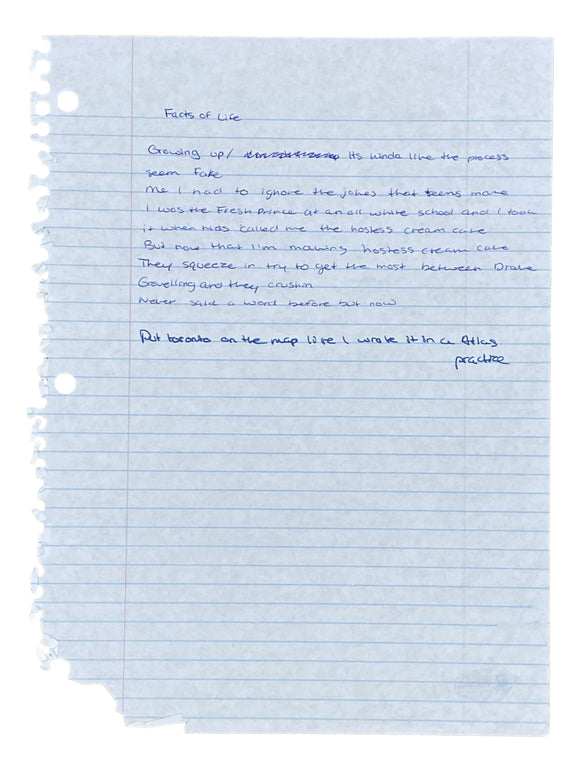 Facts of Life
Growing up/ Its kinda like the process
seem Fake
Me I had to ignore the jokes that teens make
I was the Fresh Prince at an all white school and I took
it when kids called me the hostess cream cake
But now that I'm making hostess cream cake
They squeeze in try to get the most between Drake
Govelling and they crushin
Never said a word before but now
Put toronto on the map like I wrote it in a Atlas
practice